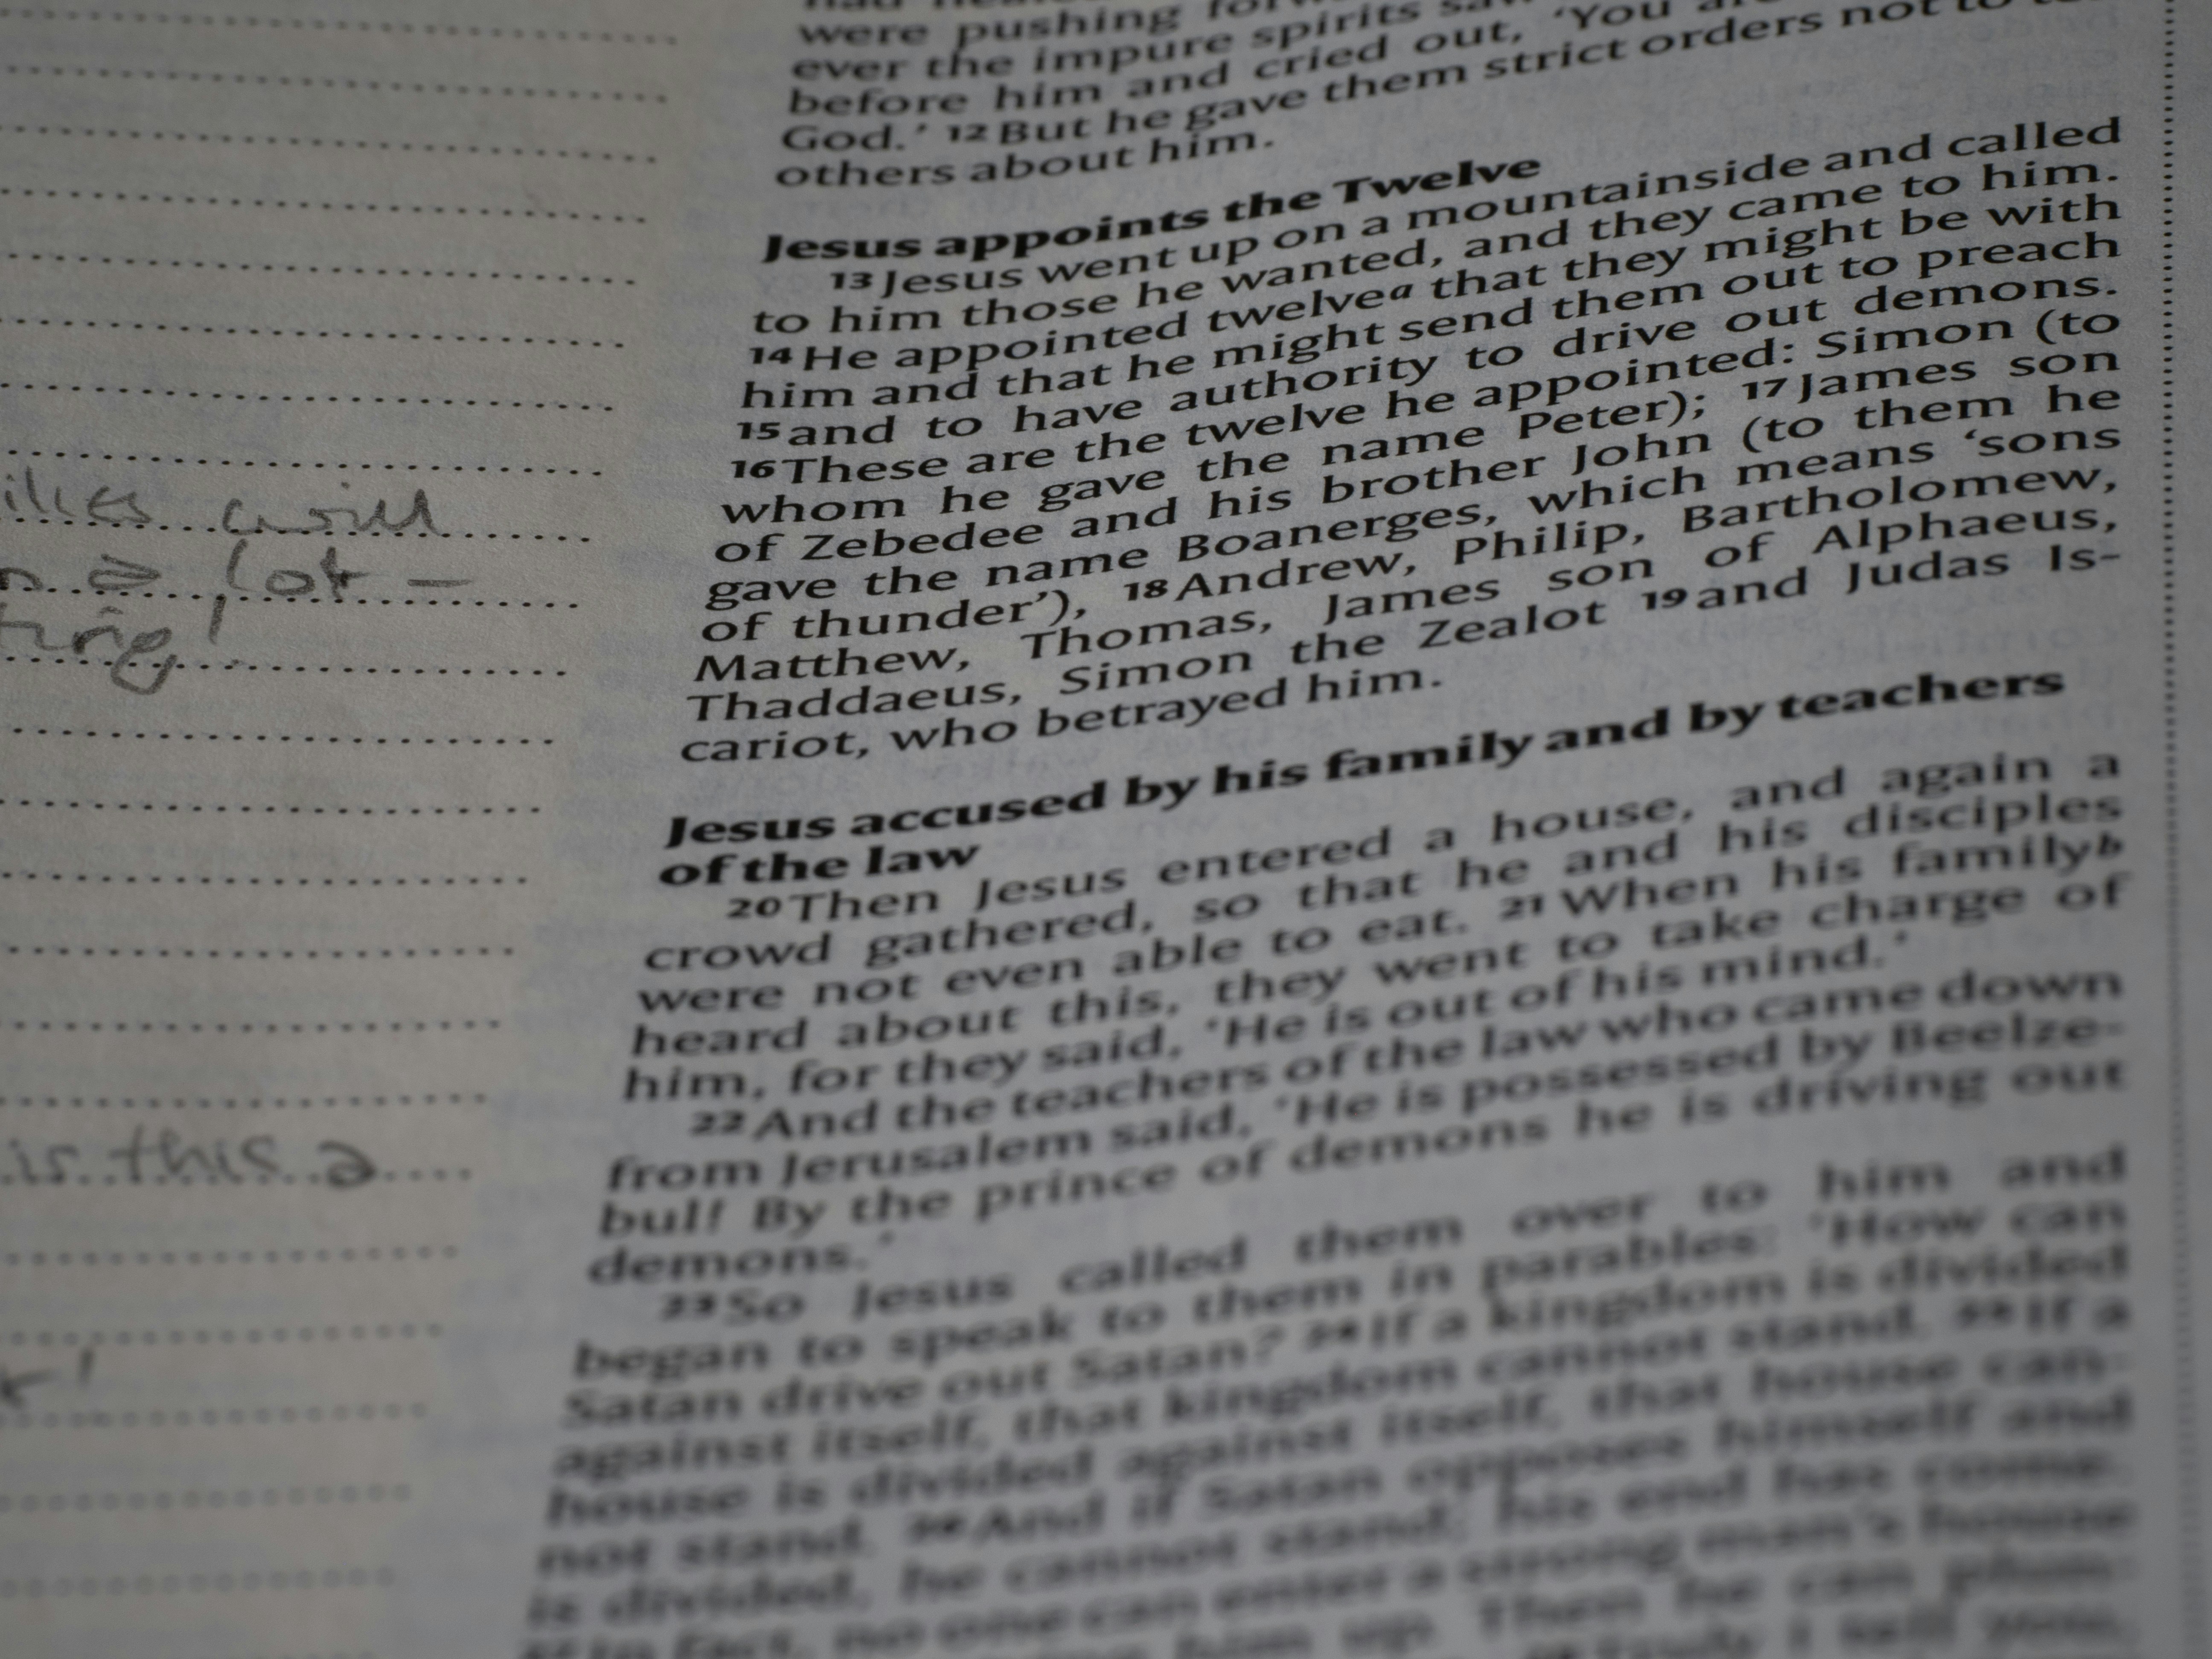 were pushing
ever the impure spirits
before him and cried out, ‘You
God.’ 12 But he gave them strict orders not to
others about him.
Jesus appoints the Twelve
13 Jesus went up on a mountainside and called
to him those he wanted, and they came to him.
14 He appointed twelveᵃ that they might be with
him and that he might send them out to preach
15 and to have authority to drive out demons.
16 These are the twelve he appointed: Simon (to
whom he gave the name Peter); 17 James son
of Zebedee and his brother John (to them he
gave the name Boanerges, which means ‘sons
of thunder’), 18 Andrew, Philip, Bartholomew,
Matthew, Thomas, James son of Alphaeus,
Thaddaeus, Simon the Zealot 19 and Judas Is-
cariot, who betrayed him.
Jesus accused by his family and by teachers
of the law
20 Then Jesus entered a house, and again a
crowd gathered, so that he and his disciples
were not even able to eat. 21 When his familyᵇ
heard about this, they went to take charge of
him, for they said, ‘He is out of his mind.’
22 And the teachers of the law who came down
from Jerusalem said, ‘He is possessed by Beelze-
bul! By the prince of demons he is driving out
demons.’
23 So Jesus called them over to him and
began to speak to them in parables: ‘How can
Satan drive out Satan? 24 If a kingdom is divided
against itself, that kingdom cannot stand. 25 If a
house is divided against itself, that house can-
not stand. 26 And if Satan opposes himself and
is divided, he cannot stand; his end has come.
27 In fact, no one can enter a strong man’s house
him up. Then he can plun-
I tell you,
will
a lot –
is this a